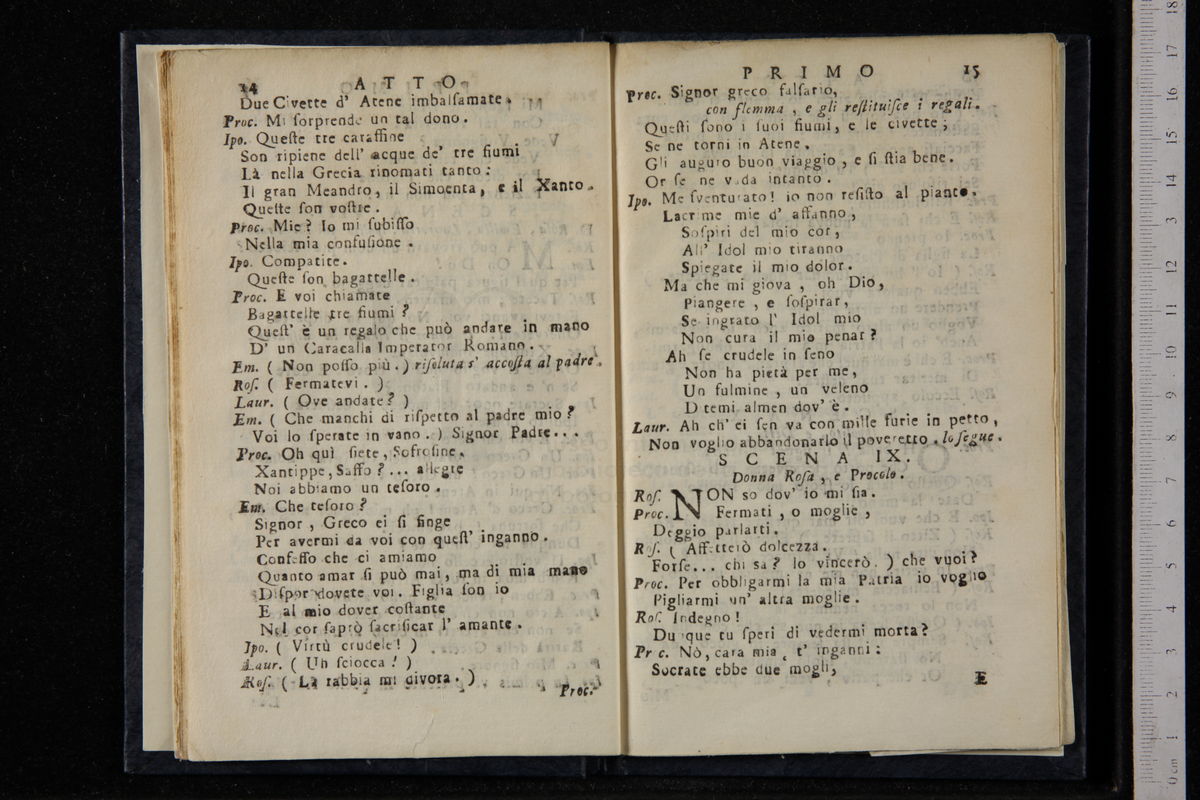 14 ATTO
Due Civette d' Atene imbalſamate.
Proc. Mi ſorprende un tal dono.
Ipo. Queſte tre caraffine
Son ripiene dell' acque de' tre fiumi
Là nella Grecia rinomati tanto:
Il gran Meandro, il Simoenta, e il Xanto.
Queſte ſon voſtre.
Proc. Mie? Io mi ſubiſſo
Nella mia confuſione.
Ipo. Compatite.
Queſte ſon bagattelle.
Proc. E voi chiamate
Bagattelle tre fiumi?
Queſt' è un regalo che può andare in mano
D' un Caracalla Imperator Romano.
Em. ( Non poſſo più. ) riſoluta s' accoſta al padre.
Roſ. ( Fermatevi. )
Laur. ( Ove andate? )
Em. ( Che manchi di riſpetto al padre mio?
Voi lo ſperate in vano. ) Signor Padre...
Proc. Oh quì ſiete, Sofroſine,
Xantippe, Saffo?... allegre
Noi abbiamo un teſoro.
Em. Che teſoro?
Signor, Greco ei ſi finge
Per avermi da voi con queſt' inganno.
Confeſſo che ci amiamo
Quanto amar ſi può mai, ma di mia mano
Diſpor dovete voi. Figlia ſon io
E al mio dover coſtante
Nel cor ſaprò ſacrificar l' amante.
Ipo. ( Virtù crudele! )
Laur. ( Uh ſciocca! )
Roſ. ( La rabbia mi divora. )
Proc.
PRIMO 15
Proc. Signor greco falſario,
con flemma, e gli reſtituiſce i regali.
Queſti ſono i ſuoi fiumi, e le civette;
Se ne torni in Atene.
Gli auguro buon viaggio, e ſi ſtia bene.
Or ſe ne vada intanto.
Ipo. Me ſventurato! io non reſiſto al pianto.
Lacrime mie d' affanno,
Soſpiri del mio cor,
All' Idol mio tiranno
Spiegate il mio dolor.
Ma che mi giova, oh Dio,
Piangere, e ſoſpirar,
Se ingrato l' Idol mio
Non cura il mio penar?
Ah ſe crudele in ſeno
Non ha pietà per me,
Un fulmine, un veleno
D temi almen dov' è.
Laur. Ah ch' ei ſen va con mille furie in petto,
Non voglio abbandonarlo il poveretto. lo ſegue.
SCENA IX.
Donna Roſa, e Procolo.
Roſ. NON so dov' io mi ſia.
Proc. Fermati, o moglie,
Deggio parlarti.
Roſ. ( Affetterò dolcezza.
Forſe... chi sa? lo vincerò. ) che vuoi?
Proc. Per obbligarmi la mia Patria io voglio
Pigliarmi un' altra moglie.
Roſ. Indegno!
Du que tu ſperi di vedermi morta?
Pr c. Nò, cara mia, t' inganni:
Socrate ebbe due mogli,
E